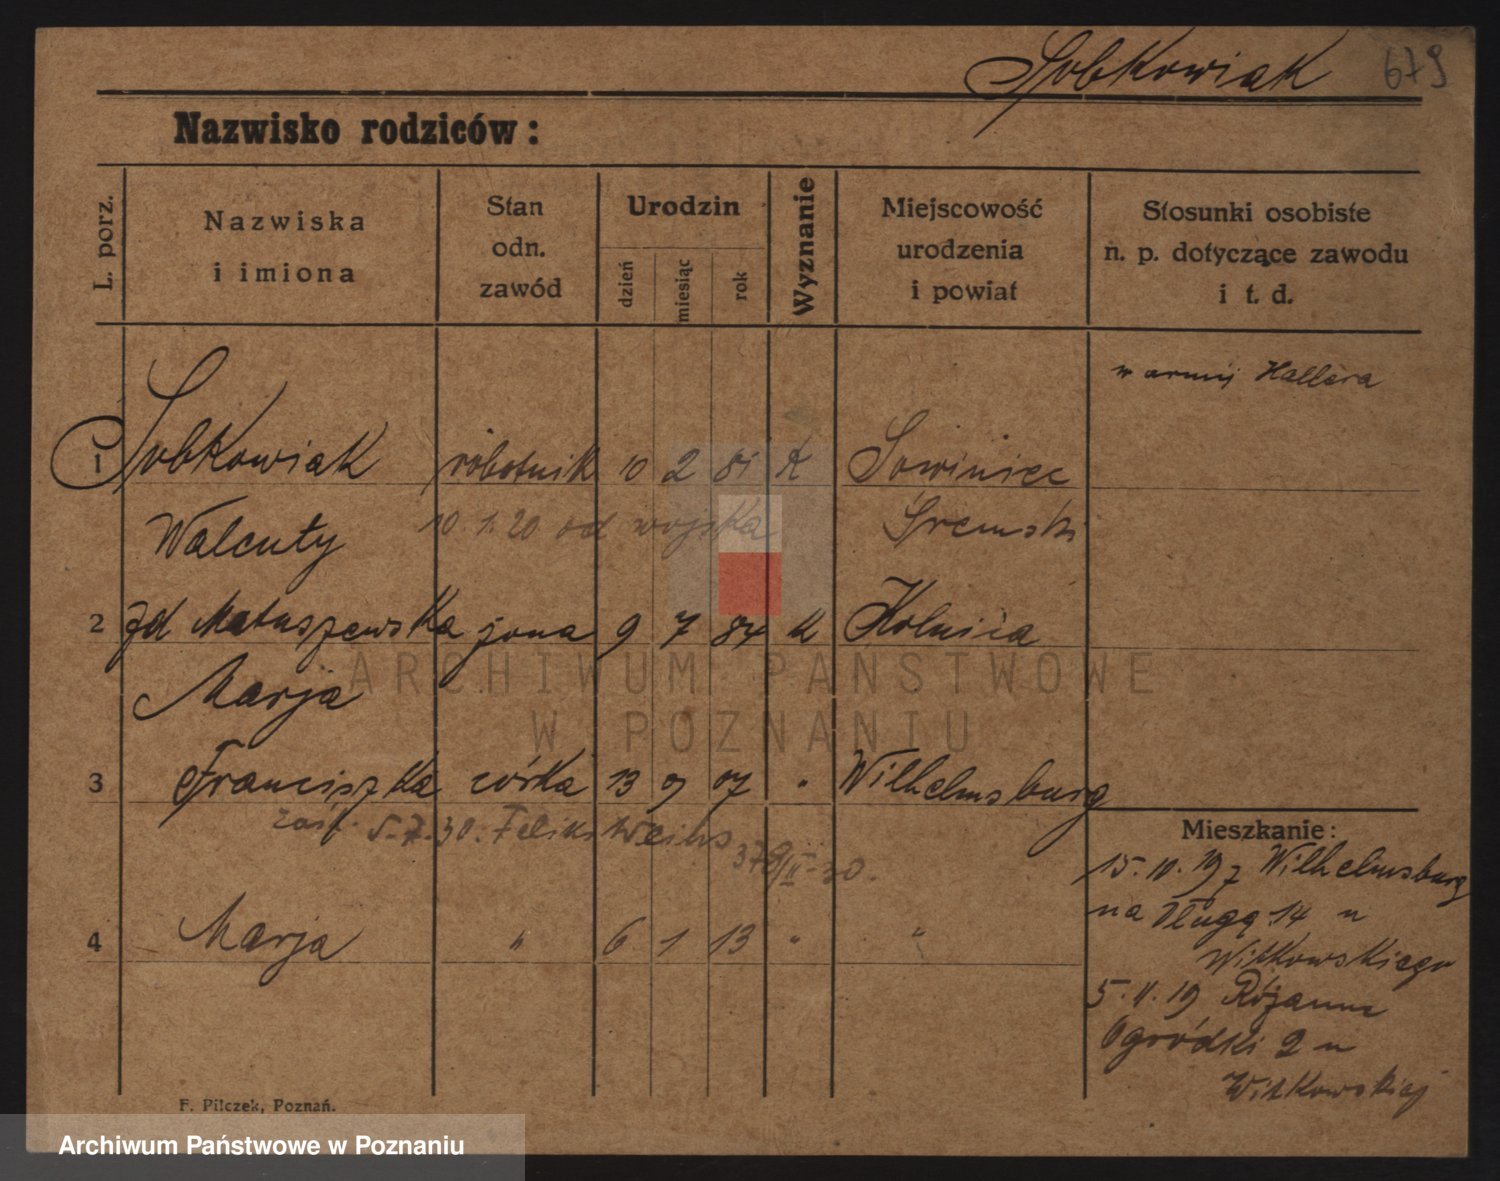 Sobkowiak 679
Nazwisko rodziców:
L. porz.
Nazwiska
i imiona
Stan
odn.
zawód
Urodzin
dzień
miesiąc
rok
Wyznanie
Miejscowość
urodzenia
i powiat
Stosunki osobiste
n. p. dotyczące zawodu
i t. d.
w armij Hallera
1 Sobkowiak robotnik 10 2 81 K Sowiniec
Walenty 10.1.20 od wojska Śremski
2 zd Matuszewska żona 9 7 84 K
Marja
3 Franciszka córka 13 9 07 " Wilhelmsburg
5.7.30. Feliks
Mieszkanie:
15.10.19 z Wilhelmsburg
na Długą 14 u
Witkowskiego
4 Marja " 6 1 13 " "
5.11.19 Różanne
Ogródki 2 u
Witkowskiej
F. Pilczek, Poznań.
ARCHIWUM PAŃSTWOWE
W POZNANIU
Archiwum Państwowe w Poznaniu